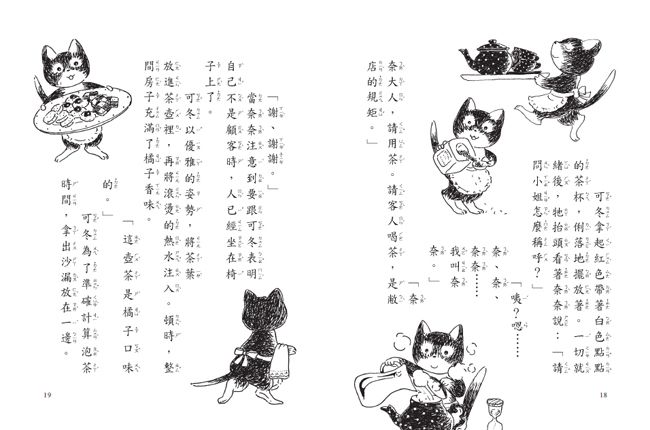 可冬拿起紅色帶著白色點點
的茶杯，俐落地擺放著。一切就
緒後，牠抬頭看著奈奈說：「請
問小姐怎麼稱呼？」
「咦？嗯……
奈、奈、
奈奈……
我叫奈
奈。」
「奈
奈大人，請用茶。請客人喝茶，是敝
店的規矩。」
18
「謝、謝謝。」
當奈奈注意到要跟可冬表明
自己不是顧客時，人已經坐在椅
子上了。
可冬以優雅的姿勢，將茶葉
放進茶壺裡，再將滾燙的熱水注入。頓時，整
間房子充滿了橘子香味。
「這壺茶是橘子口味
的。」
可冬為了準確計算泡茶
時間，拿出沙漏放在一邊。
19